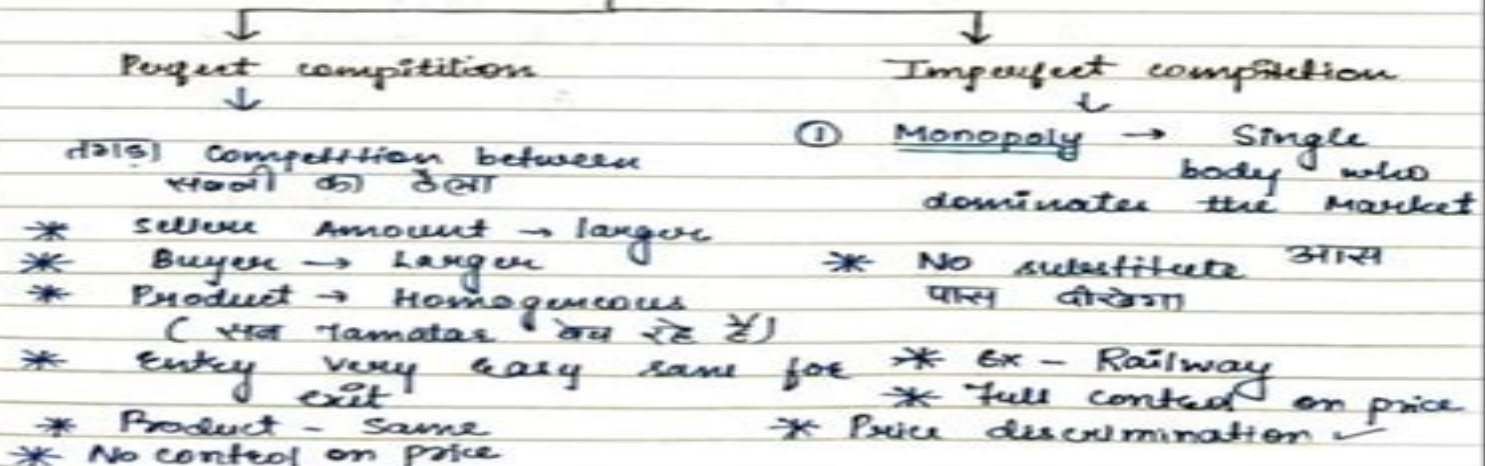 Perfect compitition
↓
तगड़ा Competition between
सब्जी का ठेला
* Sellers Amount → larger
* Buyer → Larger
* Product → Homogeneous
( सब Tamatar बेच रहे हैं)
* Entry very easy same for
exit
* Product - Same
* No control on price
Imperfect compitition
↓
① Monopoly → Single
body who
dominates the Market
* No substitute आस
पास दीखेगा
* Ex - Railway
* Full control on price
* Price discrimination ✓